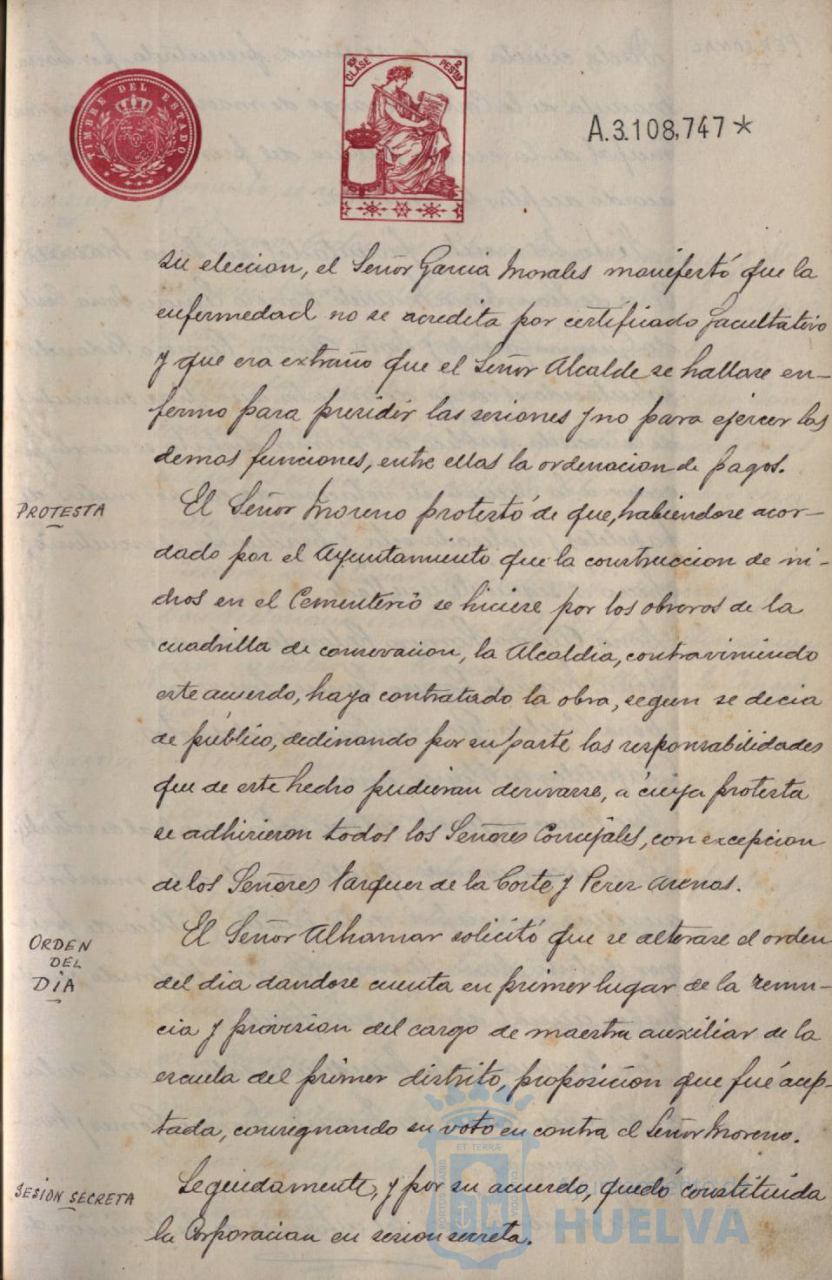 TIMBRE DEL ESTADO
10ª CLASE
2 PESTAS
A.3.108,747*
su eleccion, el Señor Garcia Morales manifestó que la
enfermedad no se acredita por certificado facultativo
y que era extraño que el Señor Alcalde se hallase en-
fermo para presidir las sesiones y no para ejercer las
demas funciones, entre ellas la ordenacion de pagos.
PROTESTA
El Señor Moreno protestó de que, habiendose acor-
dado por el Ayuntamiento que la construccion de ni-
chos en el Cementerio se hiciese por los obreros de la
cuadrilla de conservacion, la Alcaldia, contraviniendo
este acuerdo, haya contratado la obra, segun se decia
de público, declinando por su parte las responsabilidades
que de este hecho pudieran derivarse, a cuya protesta
se adhirieron todos los Señores Concejales, con excepcion
de los Señores Vazquez de la Corte y Perez Arenas.
ORDEN
DEL
DIA
El Señor Alhamar solicitó que se alterase el orden
del dia dandose cuenta en primer lugar de la renun-
cia y provision del cargo de maestra auxiliar de la
escuela del primer distrito, proposicion que fué acep-
tada, consignando su voto en contra el Señor Moreno.
SESION SECRETA
Seguidamente, y por su acuerdo, quedó constituida
la Corporacion en sesion secreta.
HUELVA